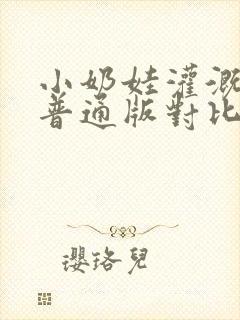 小奶娃灌溉
普通版對比
瓔珞兒